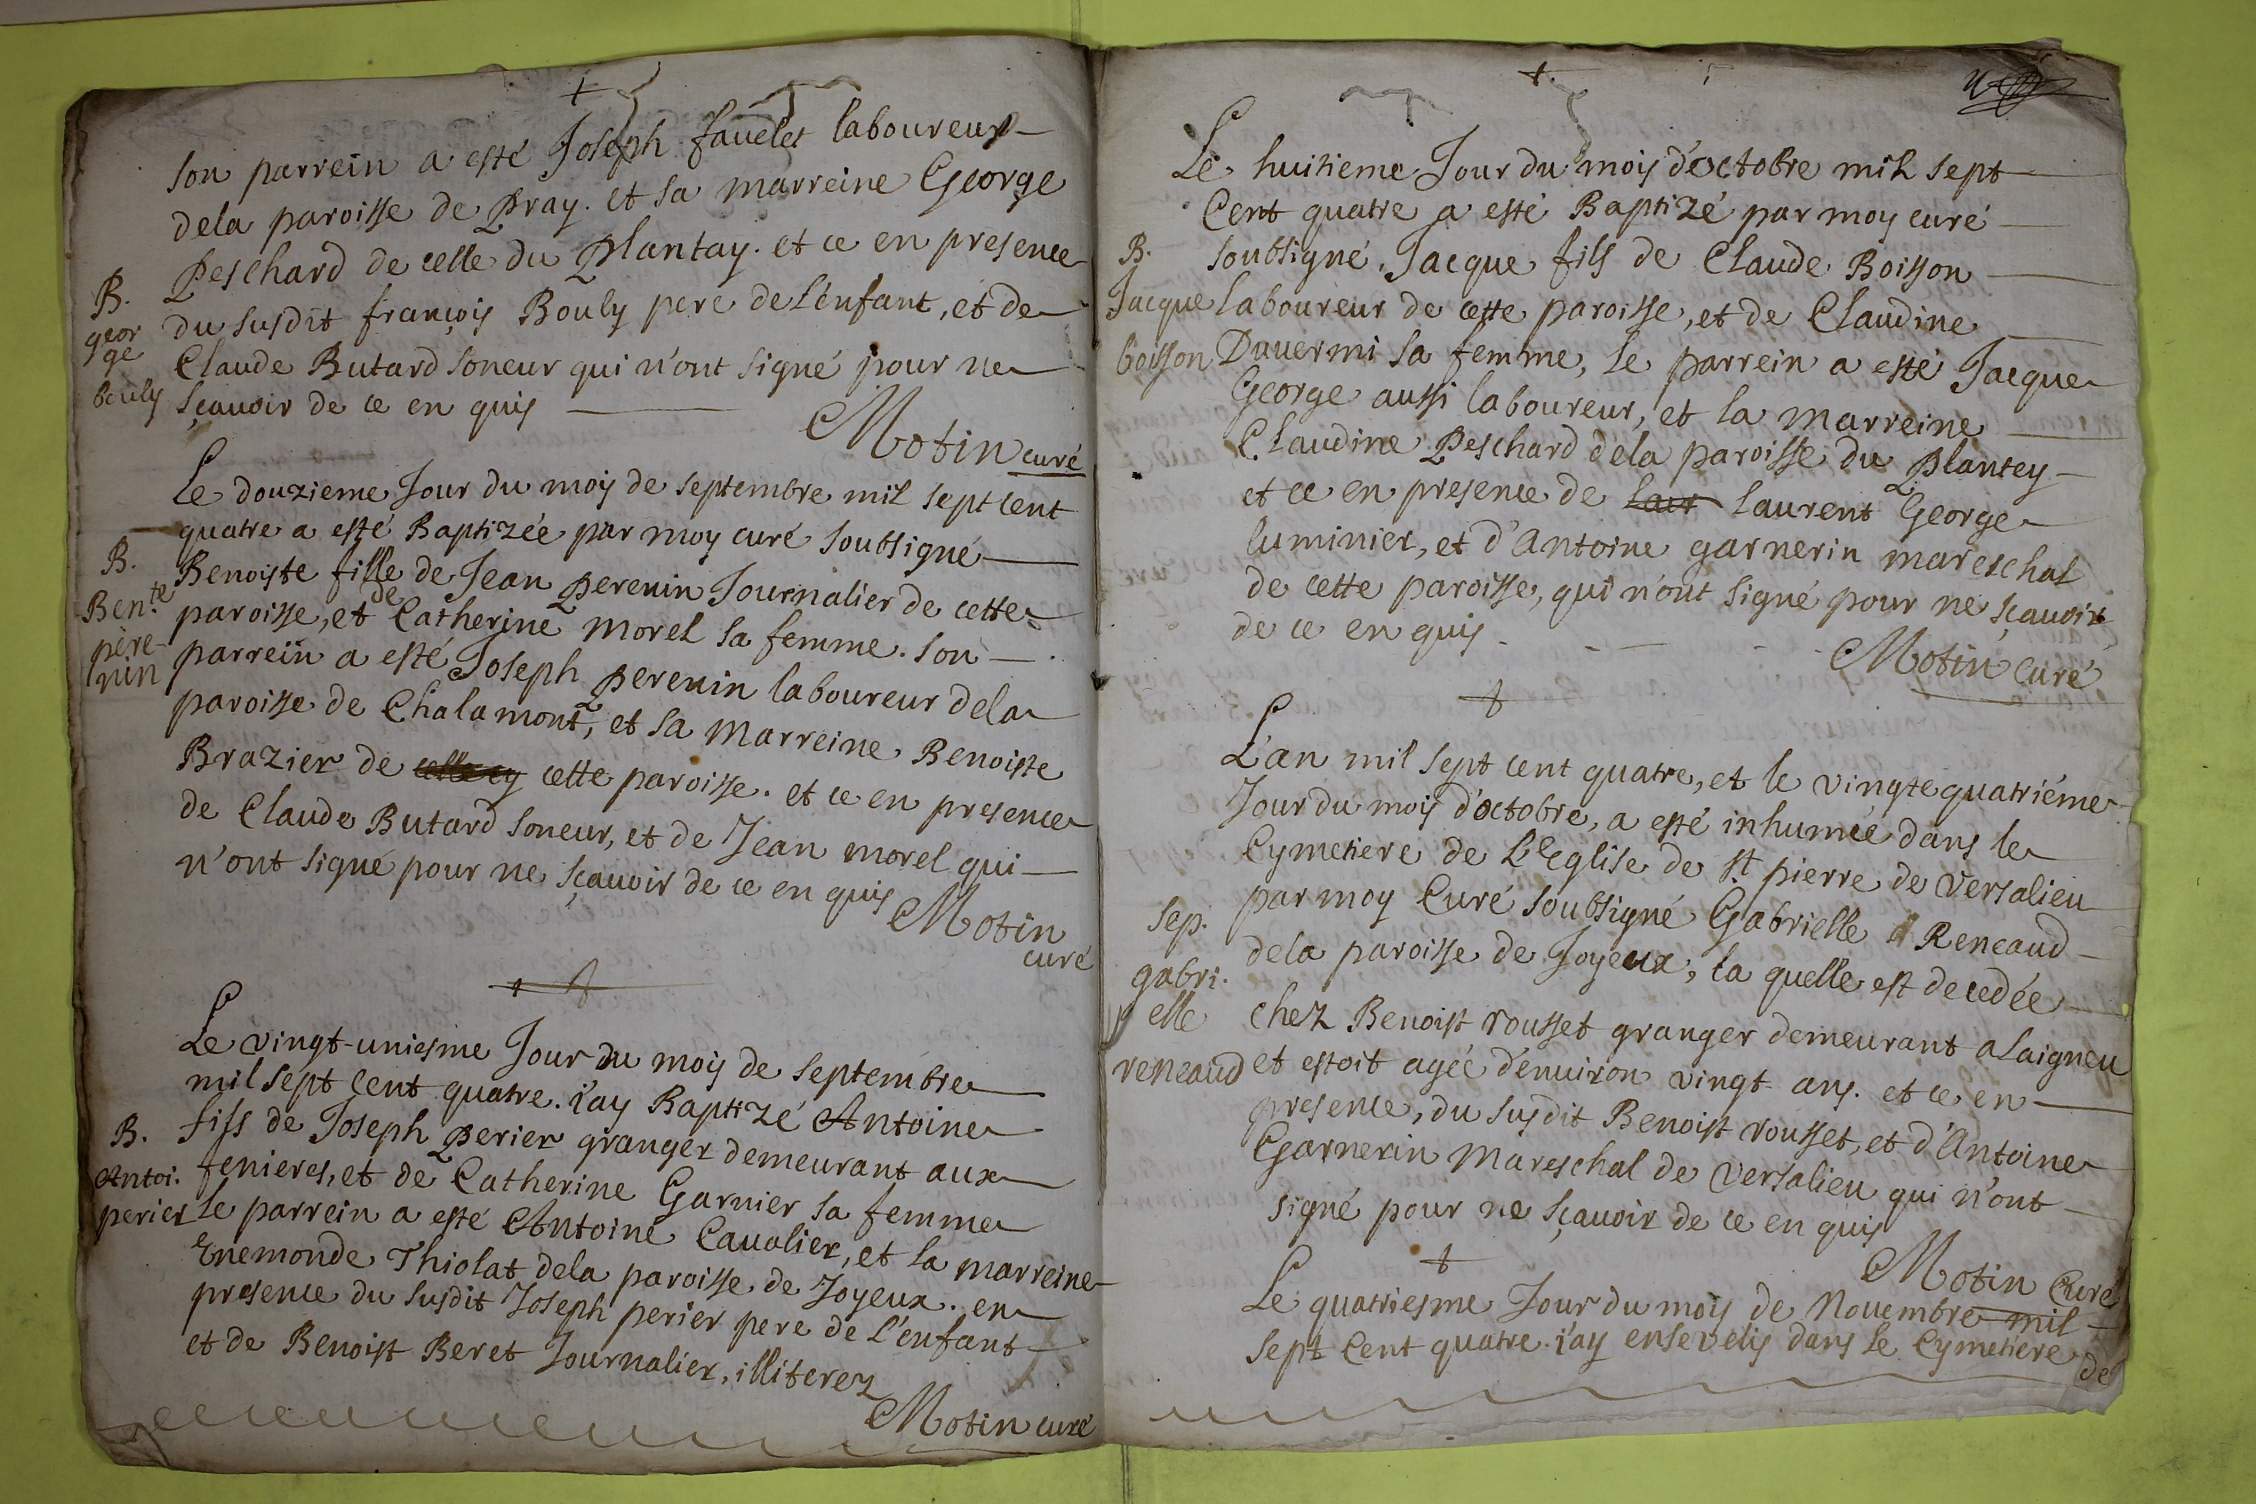 son parrein a esté Joseph favelet laboureur
dela paroisse de Pray. et sa marreine George
Peschard de celle du Plantay. et ce en presence
B.
geor
ge
bouly
du susdit françois Bouly pere de l'énfant, et de
Claude Butard soneur qui n'ont signé pour ne
sçavoir de ce en quis
Motin curé
Le douzieme Jour du mois de septembre mil sept cent
quatre a esté Baptizée par moy curé soubsigné
B.
Ben.te
pere-
nin
Benoiste fille de Jean perenin Journalier de cette
paroisse, et de Catherine morel sa femme. son
parrein a esté Joseph perenin laboureur dela
paroisse de Chalamont, et sa Marreine Benoiste
Brazier de celle cy cette paroisse. et ce en presence
de Claude Butard soneur, et de Jean morel qui
n'ont signé pour ne sçavoir de ce en quis
Motin
curé
Le vingt-uniesme Jour du mois de septembre
mil sept cent quatre. i'ay Baptizé Antoine
B.
Antoi.
perier
fils de Joseph perier granger demeurant aux
fenieres, et de Catherine Garnier sa femme
le parrein a esté Antoine Cavalier, et la marreine
Enemonde Thiolat dela paroisse de Joyeux. en
presence du susdit Joseph perier pere de l'enfant
et de Benoist Beret Journalier, illiterez
Motin curé
Le huitieme Jour du mois d'octobre mil sept
Cent quatre a esté Baptizé par moy curé
B.
Jacque
boisson
soubsigné, Jacque fils de Claude Boisson
laboureur de cette paroisse, et de Claudine
Duvermi sa femme, le parrein a esté Jacque
George aussi laboureur, et la marreine
Claudine Peschard dela paroisse du Plantey
et ce en presence de laur laurent George
luminier, et d'Antoine garnerin mareschal
de cette paroisse, qui n'ont signé pour ne sçavoir
de ce en quis
Motin Curé
L'an mil sept cent quatre, et le vingtequatriéme
Jour du mois d'octobre, a esté inhumée dans le
Cymetiere de L'Eglise de st pierre de Versalieu
Sep.
gabri.
elle
reneaud
par moy Curé soubsigné Gabrielle Reneaud
dela paroisse de Joyeux, la quelle est decedée
chez Benoist rousset granger demeurant alaigneu
et estoit agée d'environ vingt ans. et ce en
presence, du susdit Benoist rousset, et d'Antoine
Garnerin Mareschal de Versalieu qui n'ont
signé pour ne sçavoir de ce en quis
Motin Curé
Le quatriesme Jour du mois de Novembre mil
sept Cent quatre. i'ay ensevelis dans le Cymetiere
de